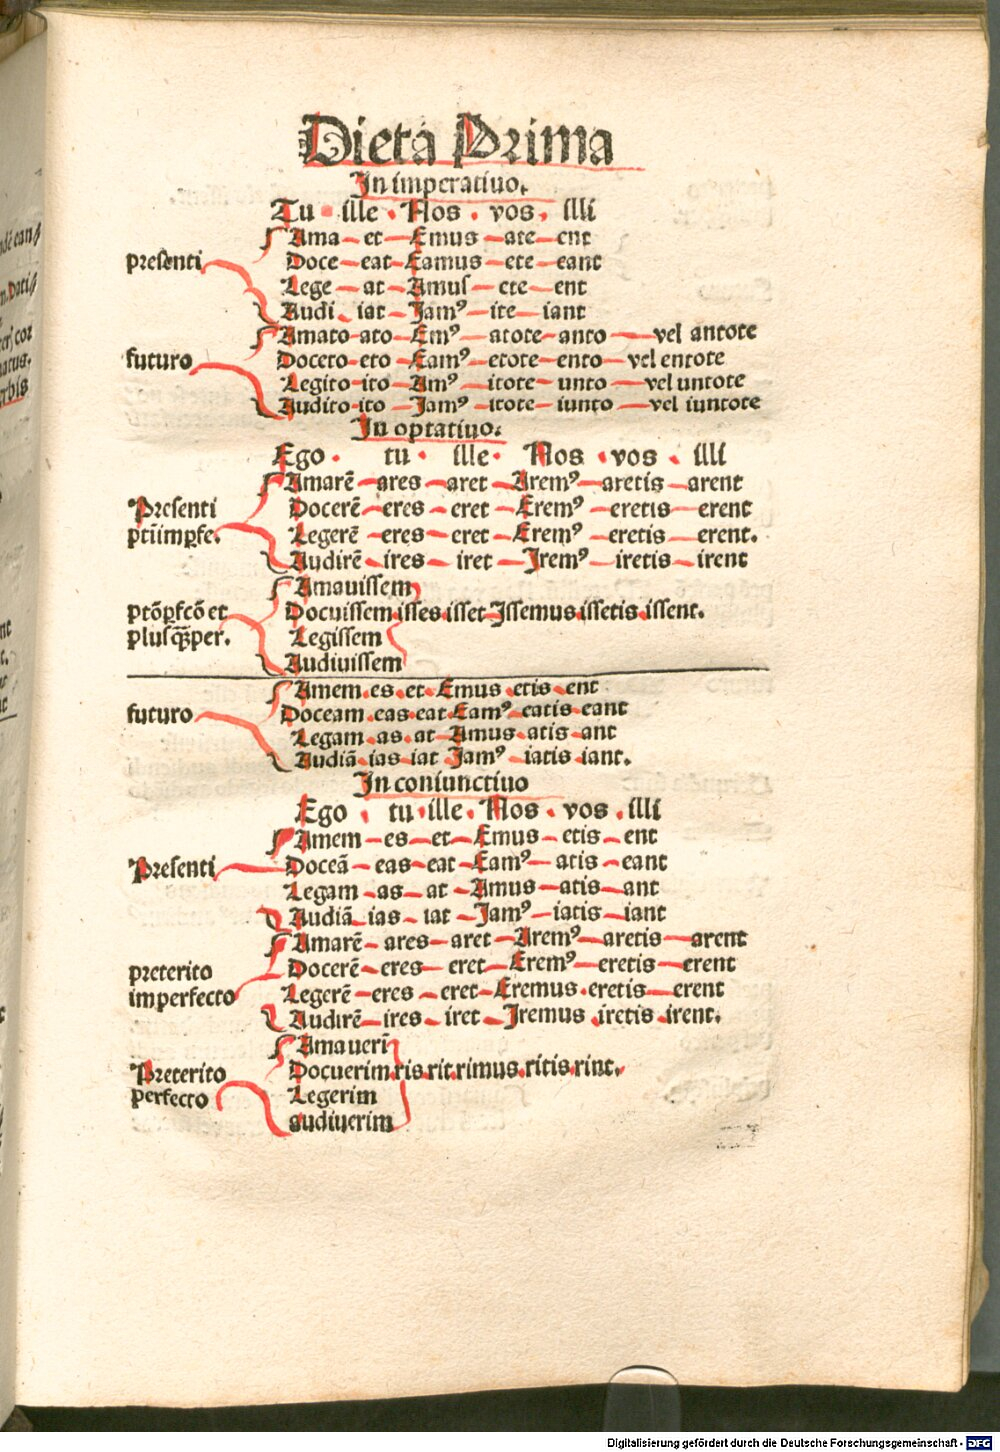 Dieta Prima
In imperatiuo.
Tu ille Nos vos illi
Ama et Emus ate ent
presenti Doce eat Eamus ete eant
Lege at Amus ete ent
Audi iat Jamꝰ ite iant
Amato ato Emꝰ atote anto vel antote
futuro Doceto eto Eamꝰ etote ento vel entote
Legito ito Amꝰ itote unto vel untote
Audito ito Jamꝰ itote iunto vel iuntote
In optatiuo.
Ego tu ille Nos vos illi
Amarē ares aret Aremꝰ aretis arent
Presenti Docerē eres eret Eremꝰ eretis erent
ptiimꝑfe. Legerē eres eret Eremꝰ eretis erent.
Audirē ires iret Jremꝰ iretis irent
Amauissem
ptōꝑfcō et Docuissem isses isset Jssemus issetis issent.
plusq̄ꝑper. Legissem
Audiuissem
Amem es et Emus etis ent
futuro Doceam eas eat Eamꝰ eatis eant
Legam as at Amus atis ant
Audiā ias iat Jamꝰ iatis iant.
In coniunctiuo
Ego tu ille Nos vos illi
Amem es et Emus etis ent
Presenti Doceā eas eat Eamꝰ atis eant
Legam as at Amus atis ant
Audiā ias iat Jamꝰ iatis iant
Amarē ares aret Aremꝰ aretis arent
preterito Docerē eres eret Eremꝰ eretis erent
imperfecto Legerē eres eret Eremus eretis erent
Audirē ires iret Jremus iretis irent.
Amaueri
Preterito Docuerim ris rit rimus ritis rint.
perfecto Legerim
audiuerim
Digitalisierung gefördert durch die Deutsche Forschungsgemeinschaft - DFG